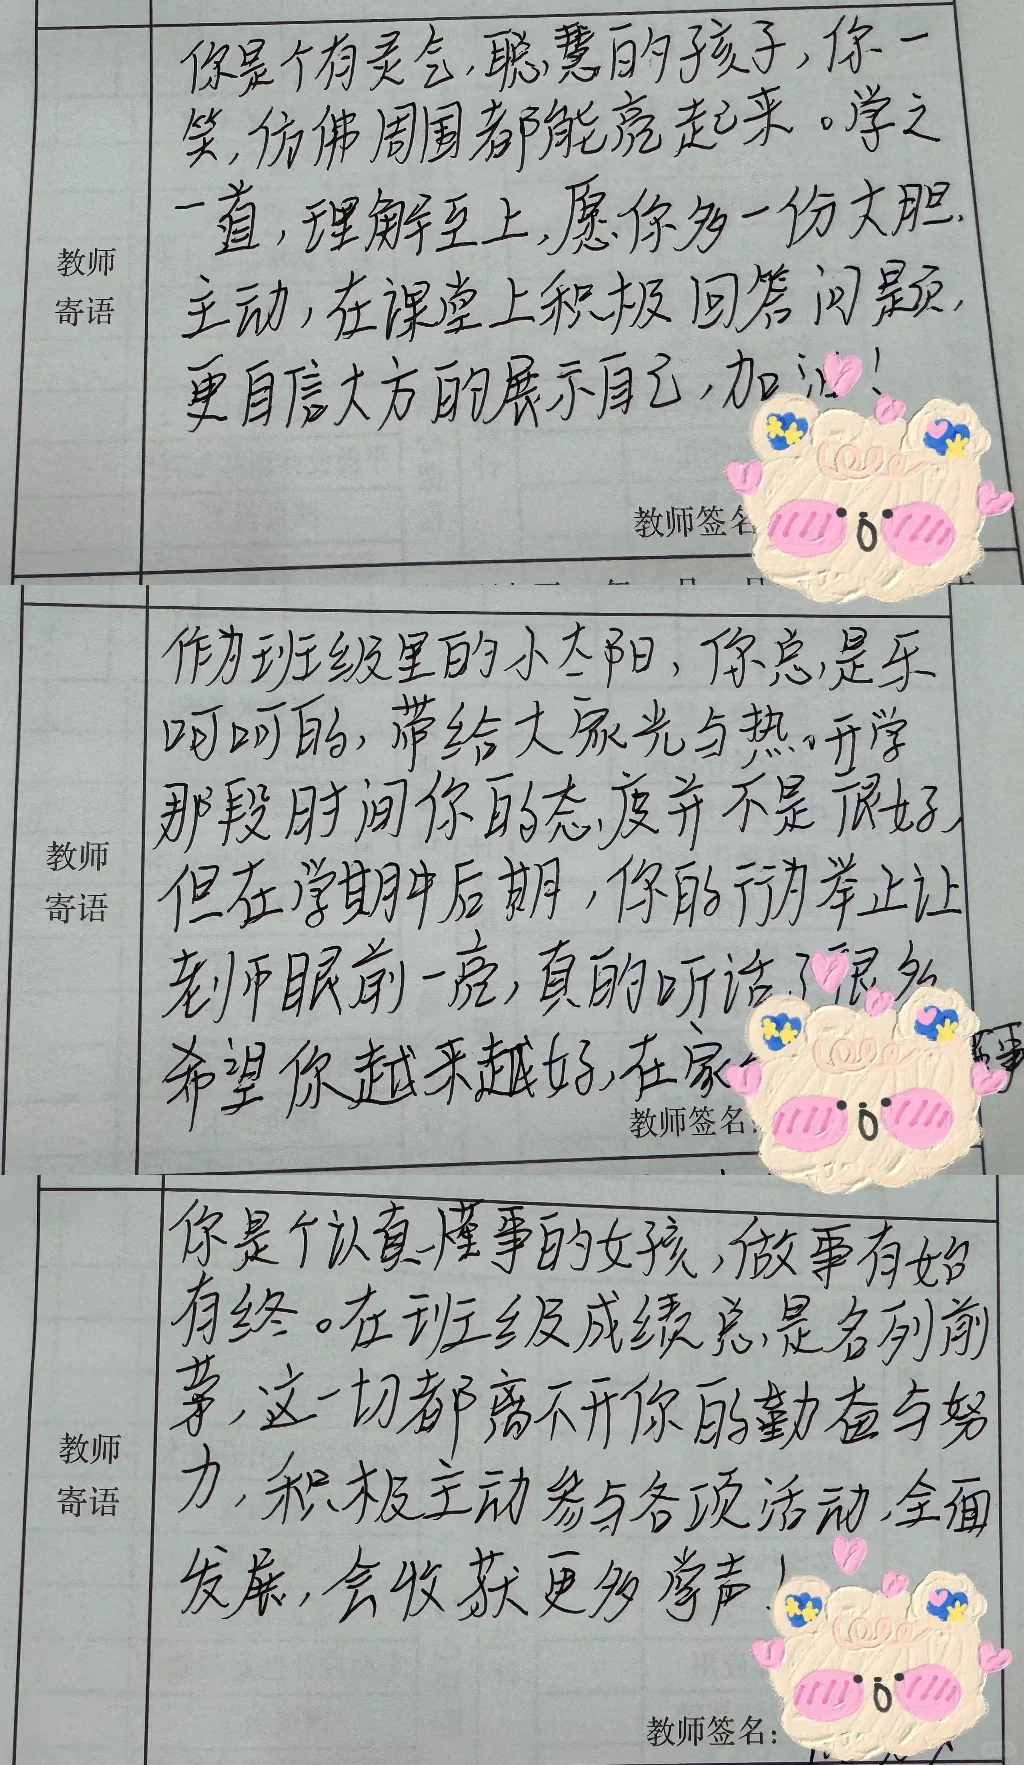 你是个有灵气,聪慧的孩子,你一
笑,仿佛周围都能亮起来。学之
一道,理解至上,愿你多一份大胆、
主动,在课堂上积极回答问题,
更自信大方的展示自己,加油!
教师
寄语
教师签名
作为班级里的小太阳,你总是乐
呵呵的,带给大家光与热。开学
那段时间你的态度并不是很好,
但在学期中后期,你的行为举止让
老师眼前一亮,真的听话了很多
希望你越来越好,在家
教师
寄语
教师签名:
你是个认真、懂事的女孩,做事有始
有终。在班级成绩总是名列前
茅,这一切都离不开你的勤奋与努
力,积极主动参与各项活动,全面
发展,会收获更多掌声!
教师
寄语
教师签名: